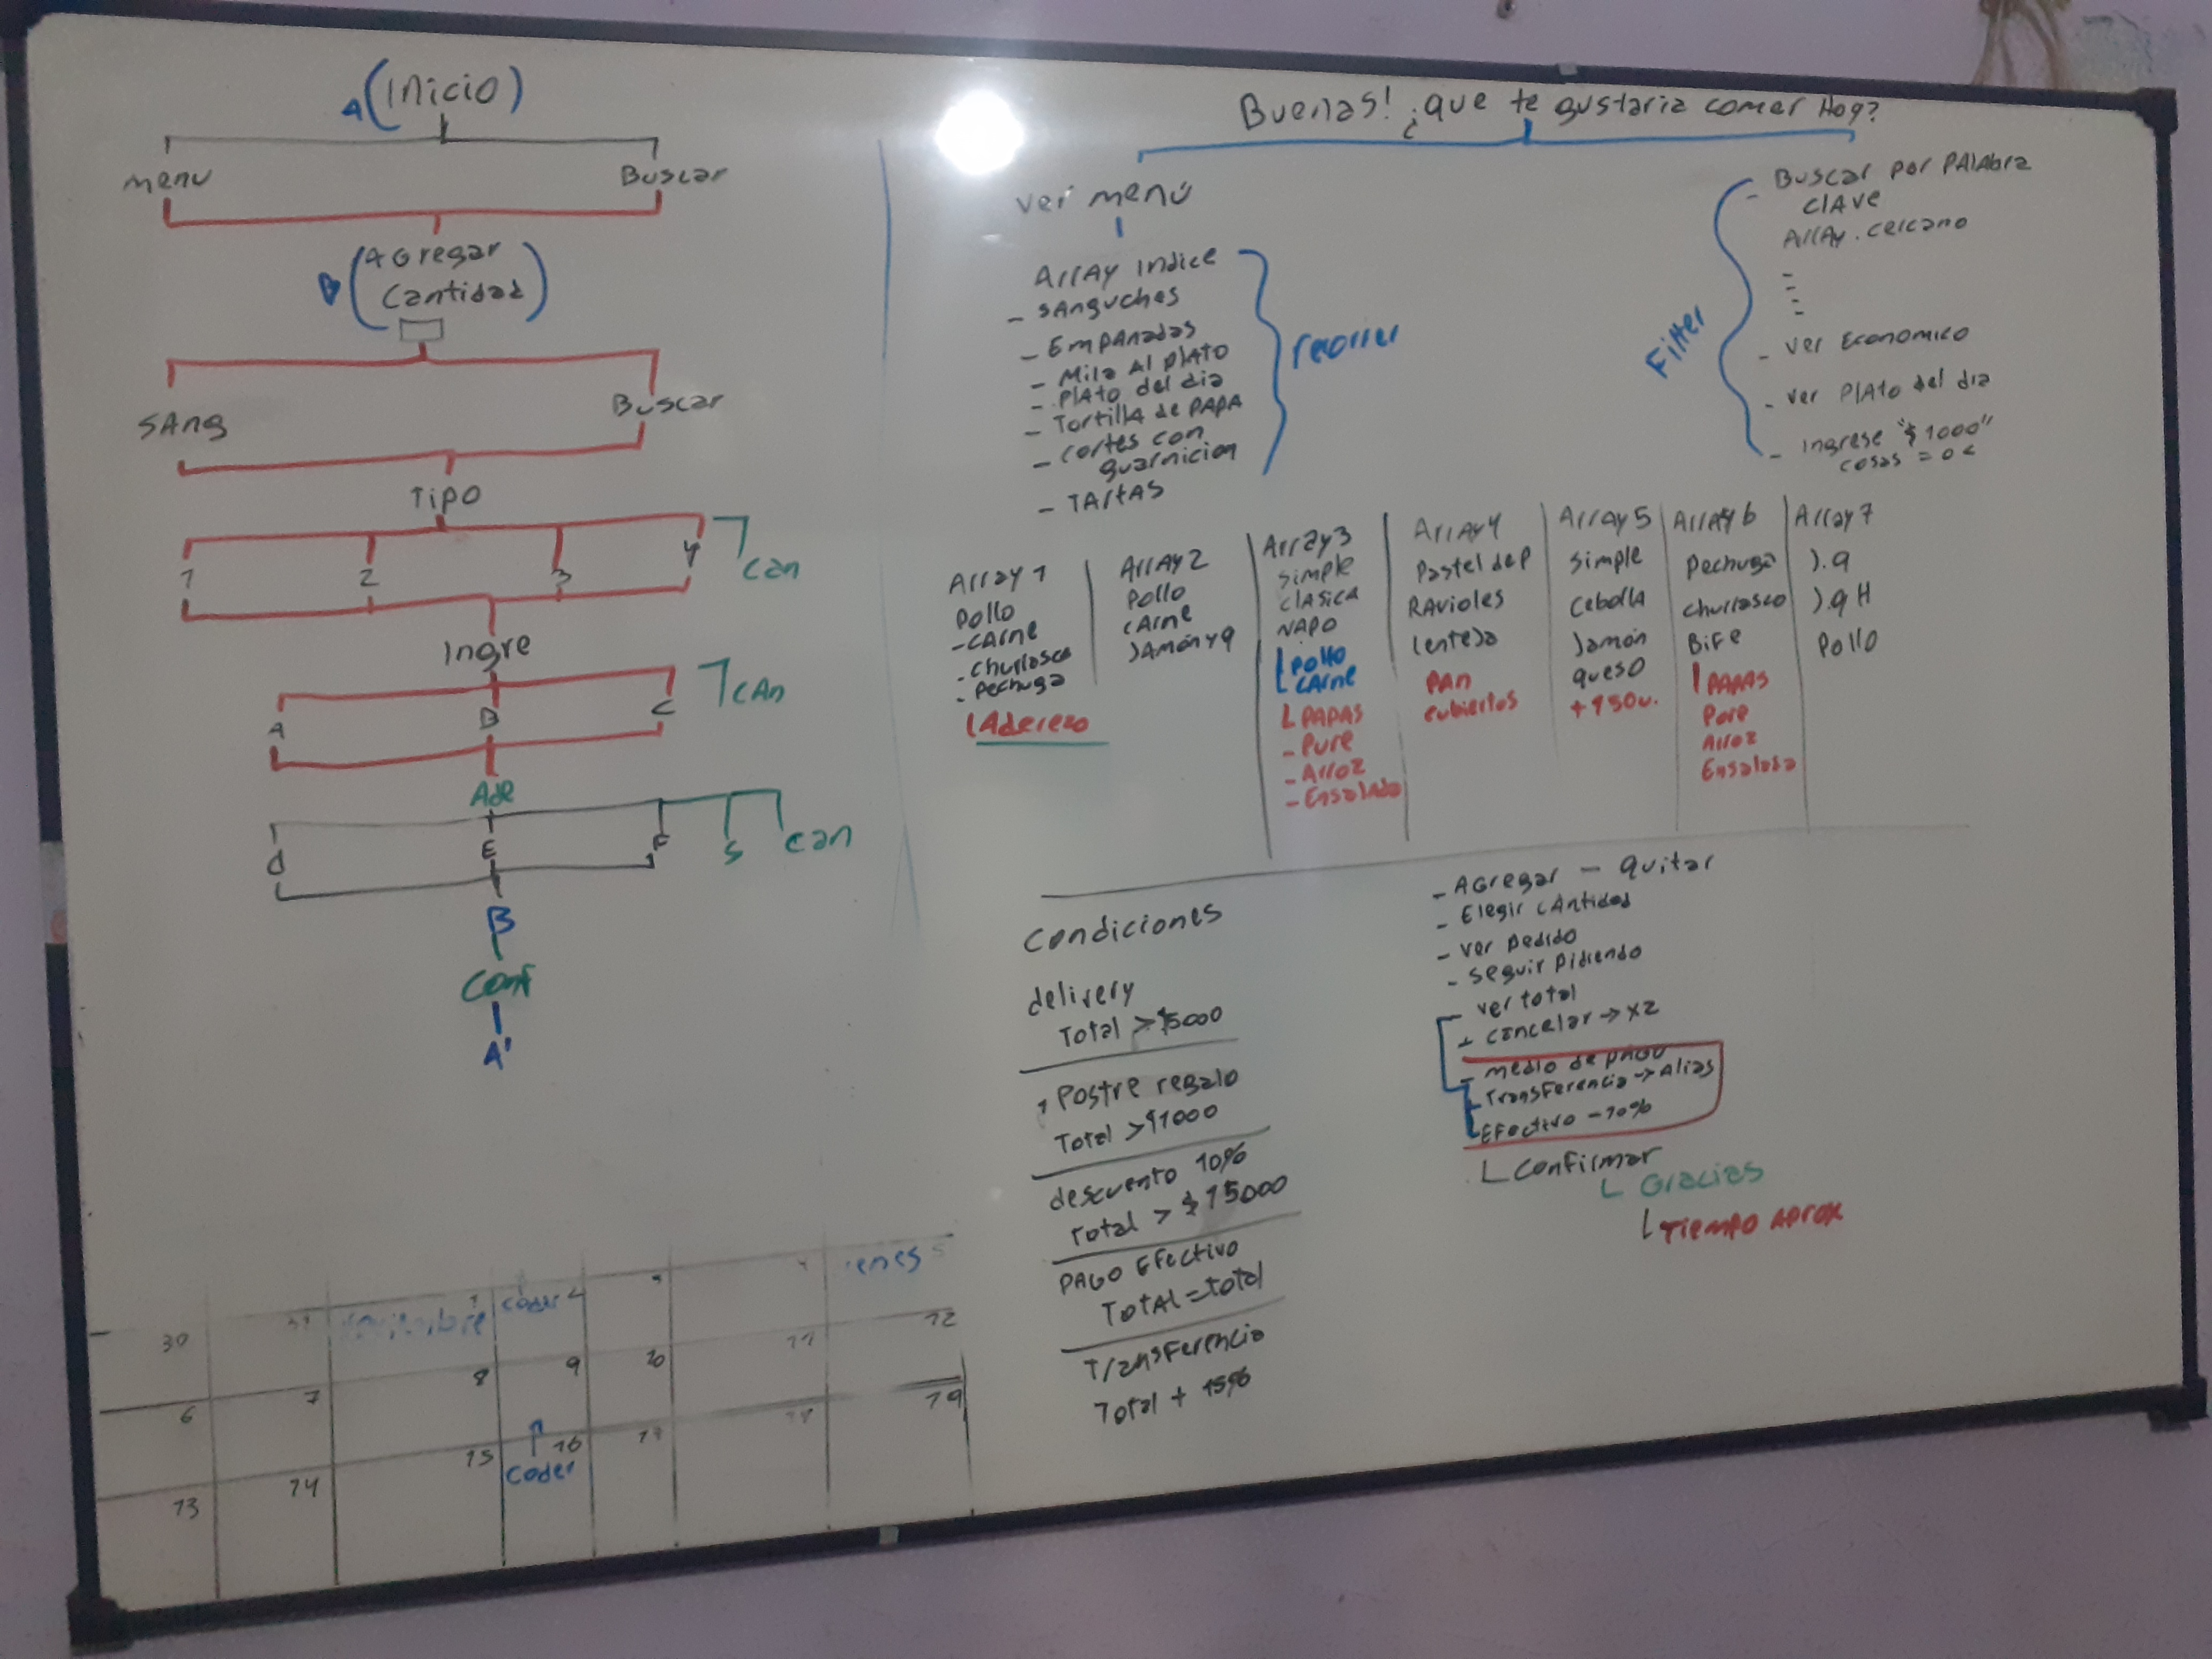 A (Inicio)
Menu
Buscar
B (Agregar
Cantidad)
Sang
Buscar
Tipo
1 2 3 4
Can
Ingre
A B C
Can
Ade
d E F S Can
B
Conf
A'
Buenas! ¿que te gustaria comer Hoy?
Ver menú
Array indice
- Sanguches
- Empanadas
- Mila Al plato
- Plato del dia
- Tortilla de PAPA
- Cortes con
guarnicion
- TArtas
recorrer
Filter
- Buscar por PAlAbra
clave
Array.cercano
-
-
-
-
- ver Economico
- ver Plato del dia
- Ingrese "$1000"
cosas = o <
Array 1
Pollo
- Carne
- Churrasco
- Pechuga
Aderezo
Array 2
Pollo
Carne
Jamón y q
Array 3
Simple
Clasica
NAPO
Pollo
Carne
PAPAS
- Pure
- Arroz
- Ensalada
Array 4
Pastel de P
RAvioles
lenteja
PAN
cubiertos
Array 5
Simple
Cebolla
Jamón
queso
+150u.
Array 6
Pechuga
Churrasco
BiFe
PAPAS
Pure
Arroz
Ensalada
Array 7
J.q
J.q H
Pollo
Condiciones
delivery
Total > $5000
1 Postre regalo
Total > $1000
descuento 10%
Total > $15000
PAGO Efectivo
Total = total
Transferencia
Total + 15%
- Agregar - quitar
- Elegir cantidad
- ver pedido
- seguir pidiendo
- ver total
- cancelar → x2
- medio de pago
- Transferencia → Alias
- Efectivo - 10%
Confirmar
Gracias
Tiempo Aprox
30 31 1 Coder 2 3 4 5
6 7 8 9 10 11 12
13 14 15 16 17 18 19
Coder